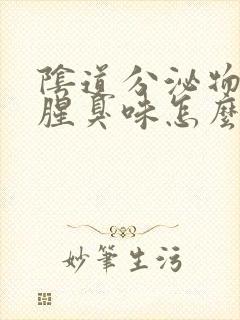 陰道分泌物
腥臭味怎麼
妙筆生污